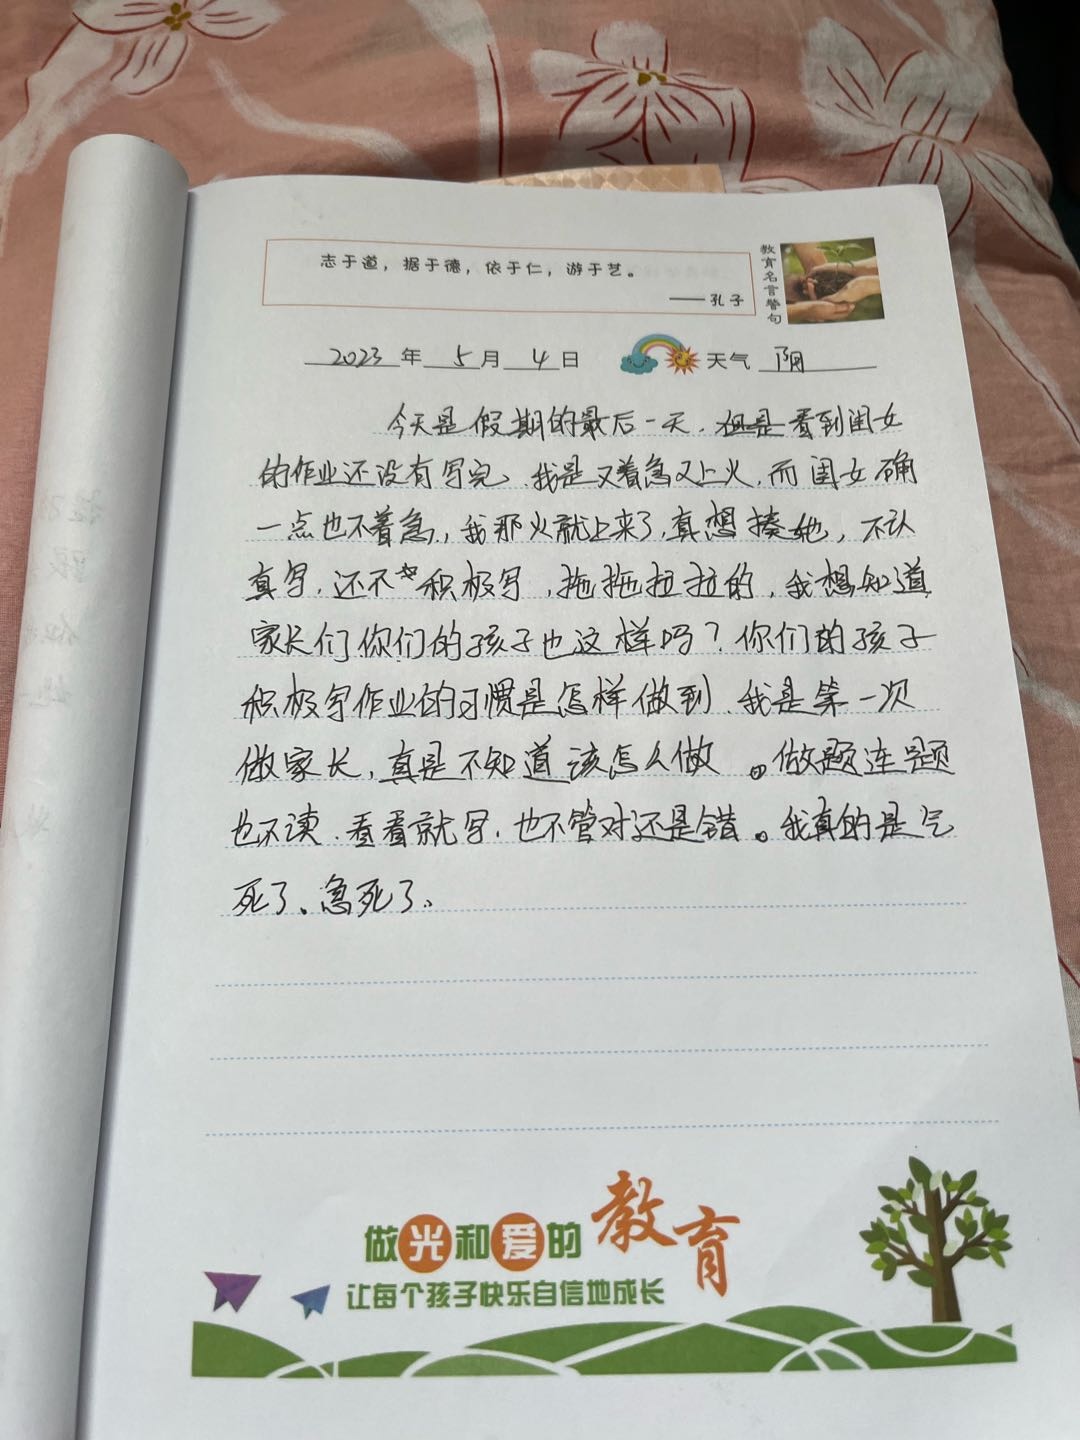 志于道，据于德，依于仁，游于艺。
——孔子
教育名言警句
2023年5月4日 天气 阴
今天是假期的最后一天，但是看到闺女
的作业还没有写完、我是又着急又上火，而闺女确
一点也不着急，我那火就上来了，真想揍她，不认
真写，还不积极写，拖拖拉拉的，我想知道
家长们你们的孩子也这样吗？你们的孩子
积极写作业的习惯是怎样做到、我是第一次
做家长，真是不知道该怎么做。做题连题
也不读、看看就写，也不管对还是错。我真的是气
死了、急死了、
做光和爱的教育
让每个孩子快乐自信地成长